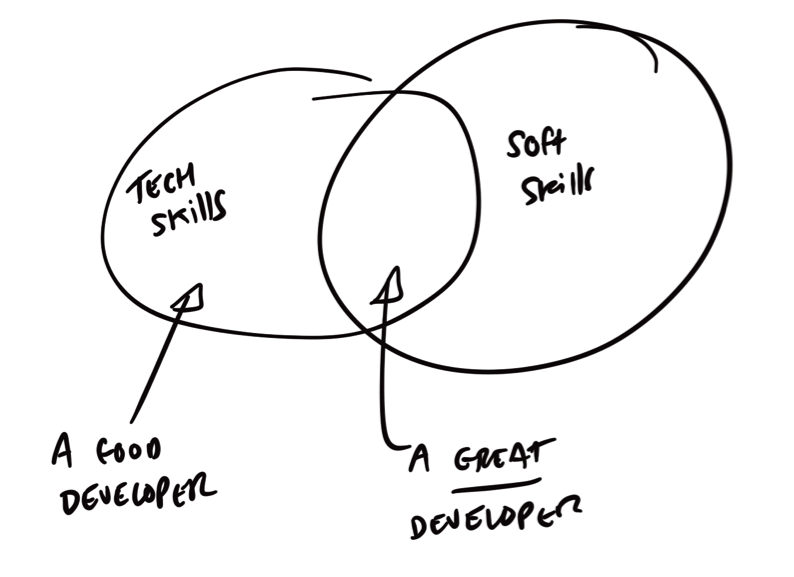 TECH
skills
Soft
skills
A GOOD
DEVELOPER
A GREAT
DEVELOPER